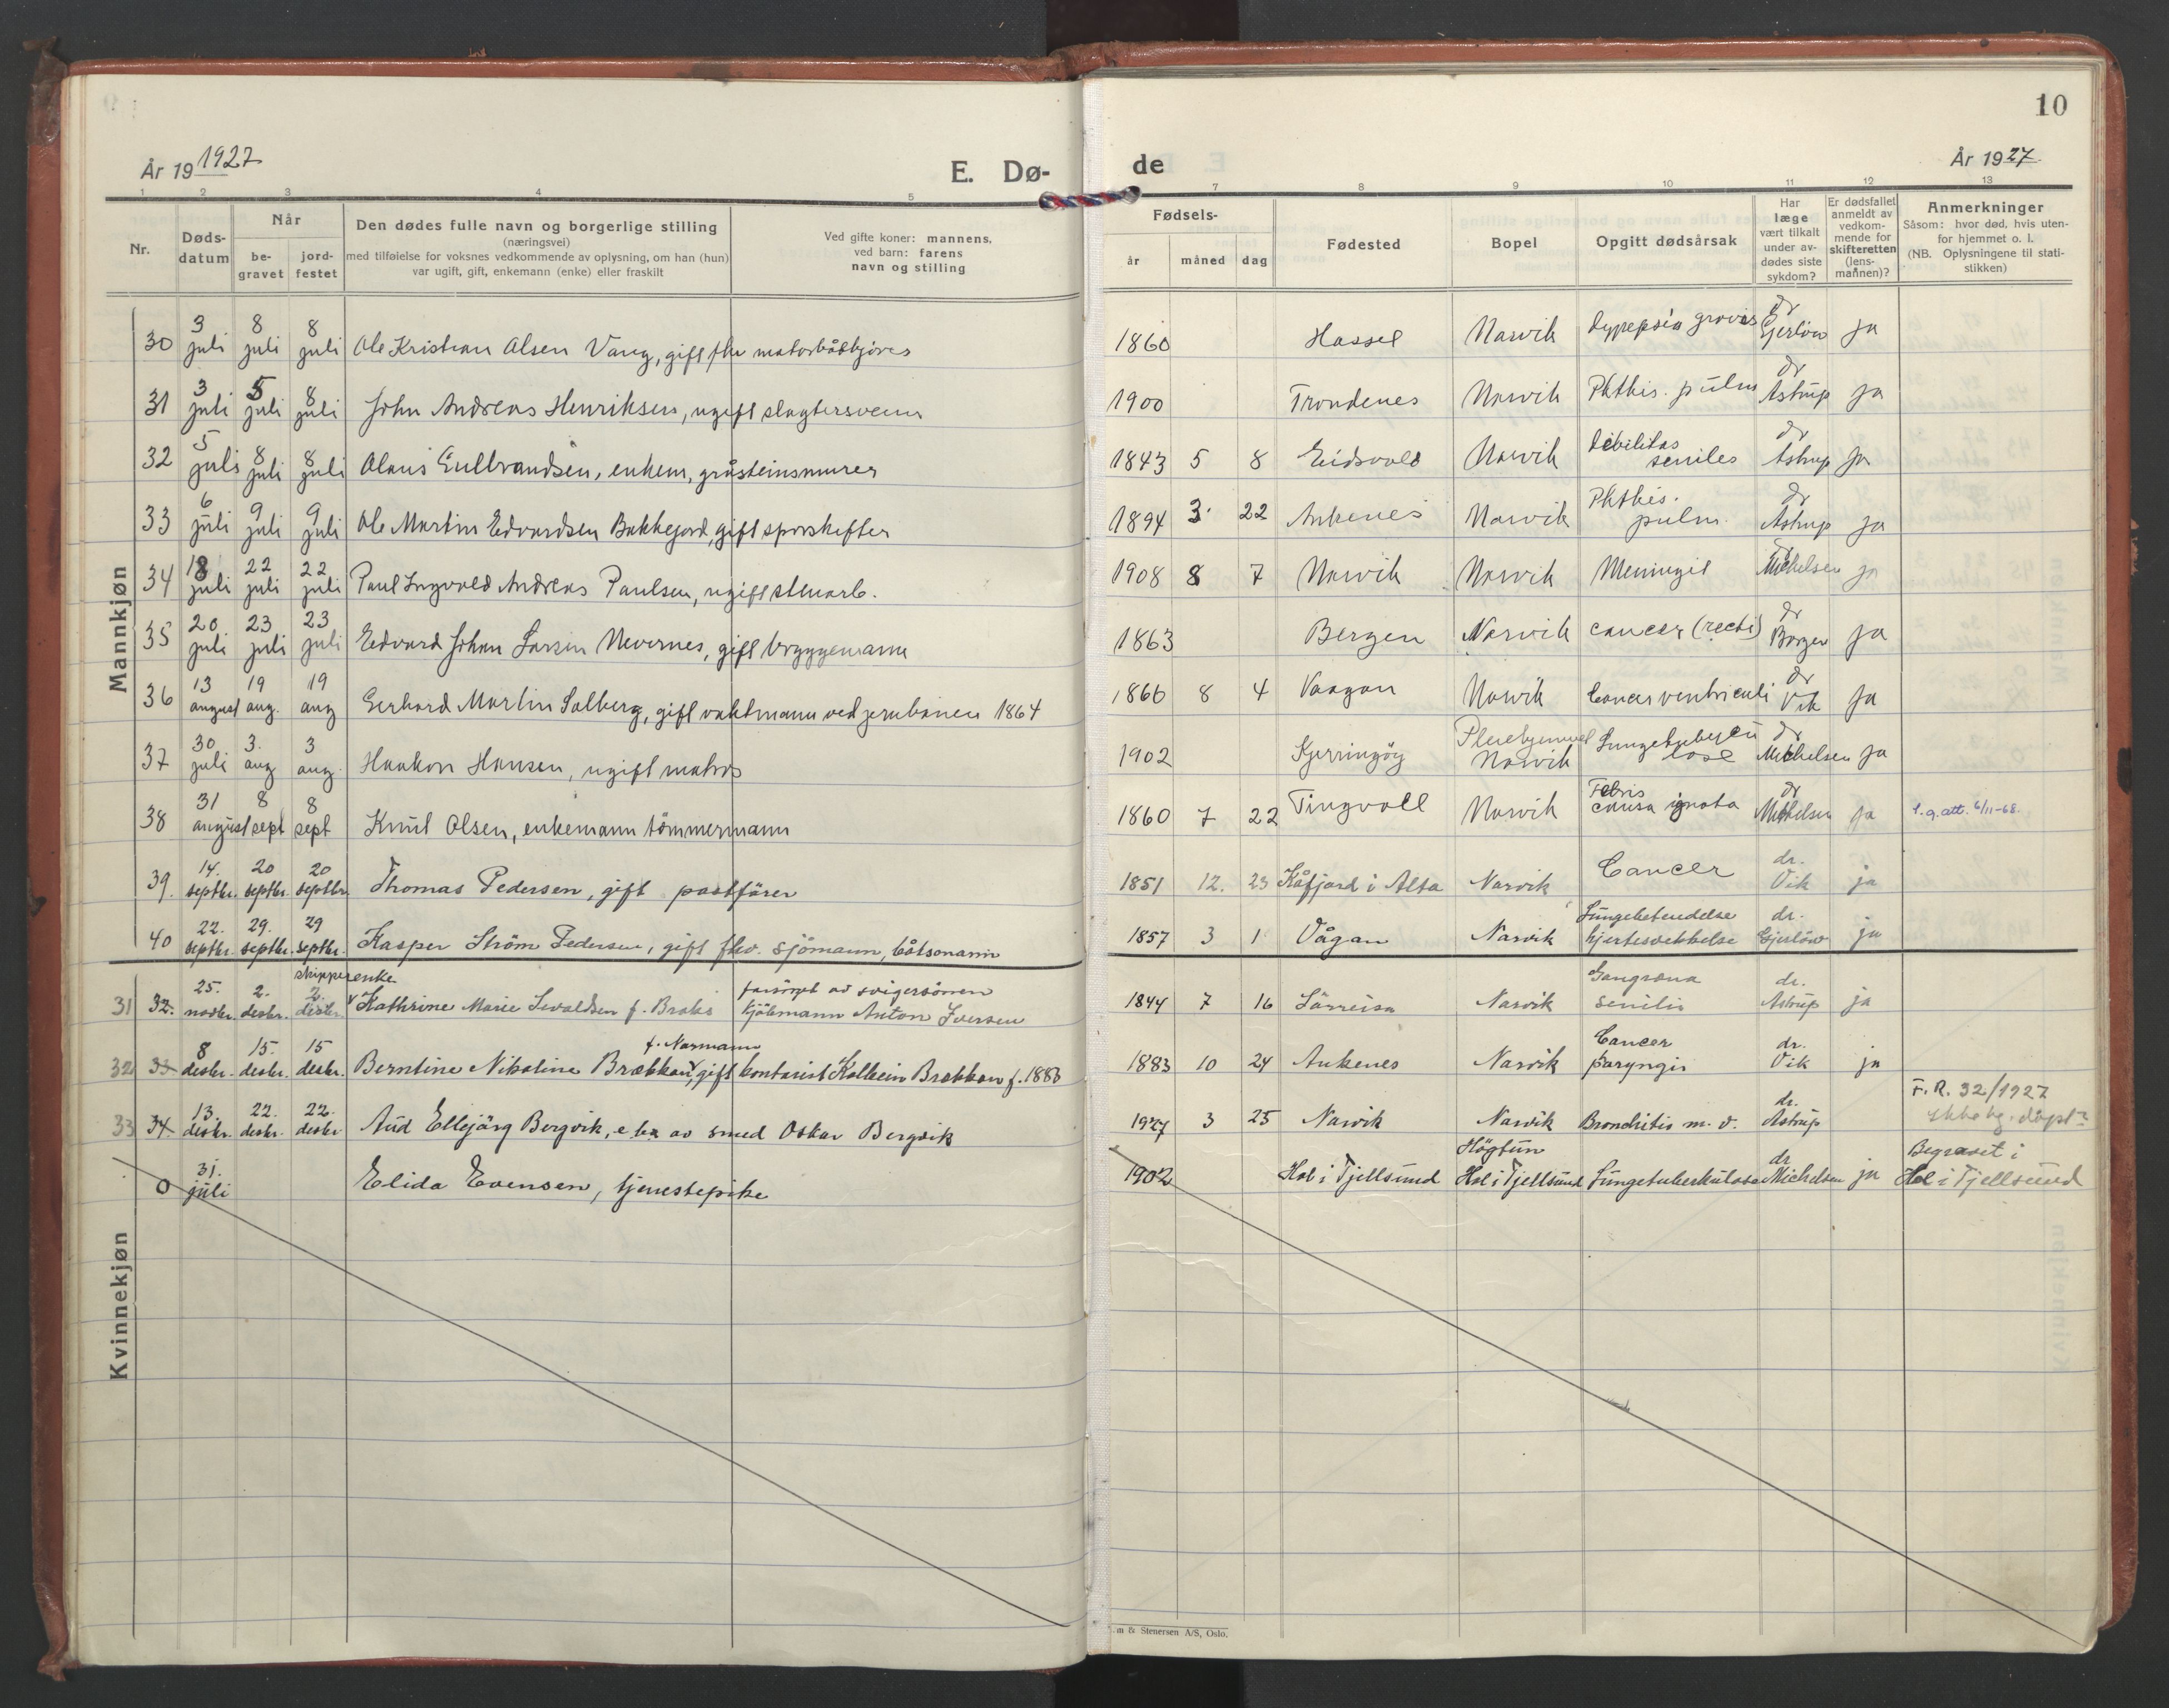 10
År 19 1927
E. Dø-
de
År 1927
1 2 3 4 5 7 8 9 10 11 12 13
Nr.
Døds-
datum
Når
be-
gravet
jord-
festet
Den dødes fulle navn og borgerlige stilling
(næringsvei)
med tilføielse for voksnes vedkommende av oplysning, om han (hun)
var ugift, gift, enkemann (enke) eller fraskilt
Ved gifte koner: mannens,
ved barn: farens
navn og stilling
Fødsels-
år måned dag
Fødested
Bopel
Opgitt dødsårsak
Har
læge
vært tilkalt
under av-
dødes siste
sykdom?
Er dødsfallet
anmeldt av
vedkom-
mende for
skifteretten
(lens-
mannen)?
Anmerkninger
Såsom: hvor død, hvis uten-
for hjemmet o. l.
(NB. Oplysningene til stati-
stikken)
Mannkjøn
30 3 juli 8 juli 8 juli Ole Kristian Olsen Vang, gift fhv motorbåtkjører 1860 Hassel Narvik dyspepsia gravis dr Gjerløw ja
31 3 juli 5 juli 8 juli John Andreas Henriksen, ugift slagtersvenn 1900 Trondenes Narvik Phthis. pulm dr Astrup ja
32 5 juli 8 juli 8 juli Olaus Gulbrandsen, enkem, gråsteinsmurer 1843 5 8 Eidsvold Narvik debilitas seniles dr Astrup ja
33 6 juli 9 juli 9 juli Ole Martin Edvardsen Bakkejord, gift sporskifter 1894 3 22 Ankenes Narvik Phthis. pulm. dr Astrup ja
34 18 juli 22 juli 22 juli Paul Ingvald Andreas Paulsen, ugift stenarb. 1908 8 7 Narvik Narvik Meningit dr Michelsen ja
35 20 juli 23 juli 23 juli Edvard Johan Larsen Nevernes, gift bryggemann 1863 Bergen Narvik cancer (recti) dr Borgen ja
36 13 august 19 aug. 19 aug Gerhard Martin Solberg, gift vaktmann ved jernbanen 1864 1866 8 4 Vaagan Narvik Cancer ventriculi dr Vik ja
37 30 juli 3. aug 3 aug. Haakon Hansen, ugift matros 1902 Kjerringøy Pleiehjemmet Narvik Lungetuberkulose dr Michelsen ja
38 31 august 8 sept 8 sept Knut Olsen, enkemann tömmermann 1860 7 22 Tingvoll Narvik Febris causa ignota dr Michelsen ja l.q.att. 6/11-68.
39. 14. septbr. 20 septbr. 20 septbr. Thomas Pedersen, gift postförer 1851 12. 23 Kåfjord i Alta Narvik Cancer dr. Vik ja
40 22. septbr. 29. septbr. 29 septbr. Kasper Ström Pedersen, gift fhv. sjömann, båtsmann 1857 3 1 Vågan Narvik Lungebetendelse hjertesvekkelse dr. Gjerløw ja
Kvinnekjøn
31 32. 25. novbr. 2. desbr. 2. desbr. skipperenke Kathrine Marie Sevaldsen f. Broks forsörget av svigersönnen kjöbmann Anton Iversen 1844 7 16 Sörreisa Narvik Gangræna senilis dr. Astrup ja
32 33 8 desbr. 15. desbr. 15 desbr. Berntine Nikoline Brækkan, f. Normann gift kontorist Kolbein Brækkan f. 1883 1883 10 24 Ankenes Narvik Cancer paryngis dr. Vik ja
33 34. 13. desbr. 22. desbr. 22. desbr Aud Ellejörg Bergvik, e. ba av smed Oskar Bergvik 1927 3 25 Narvik Narvik Bronchitis m. v. dr. Astrup F.R. 32/1927 Ikke hj. döpt?
0 31. juli Elida Evensen, tjenestepike 1902 Hol i Tjellsund Högtun Hol i Tjellsund Lungetuberkulose dr Michelsen ja Begravet i Hol i Tjellsund
m & Stenersen A/S, Oslo.